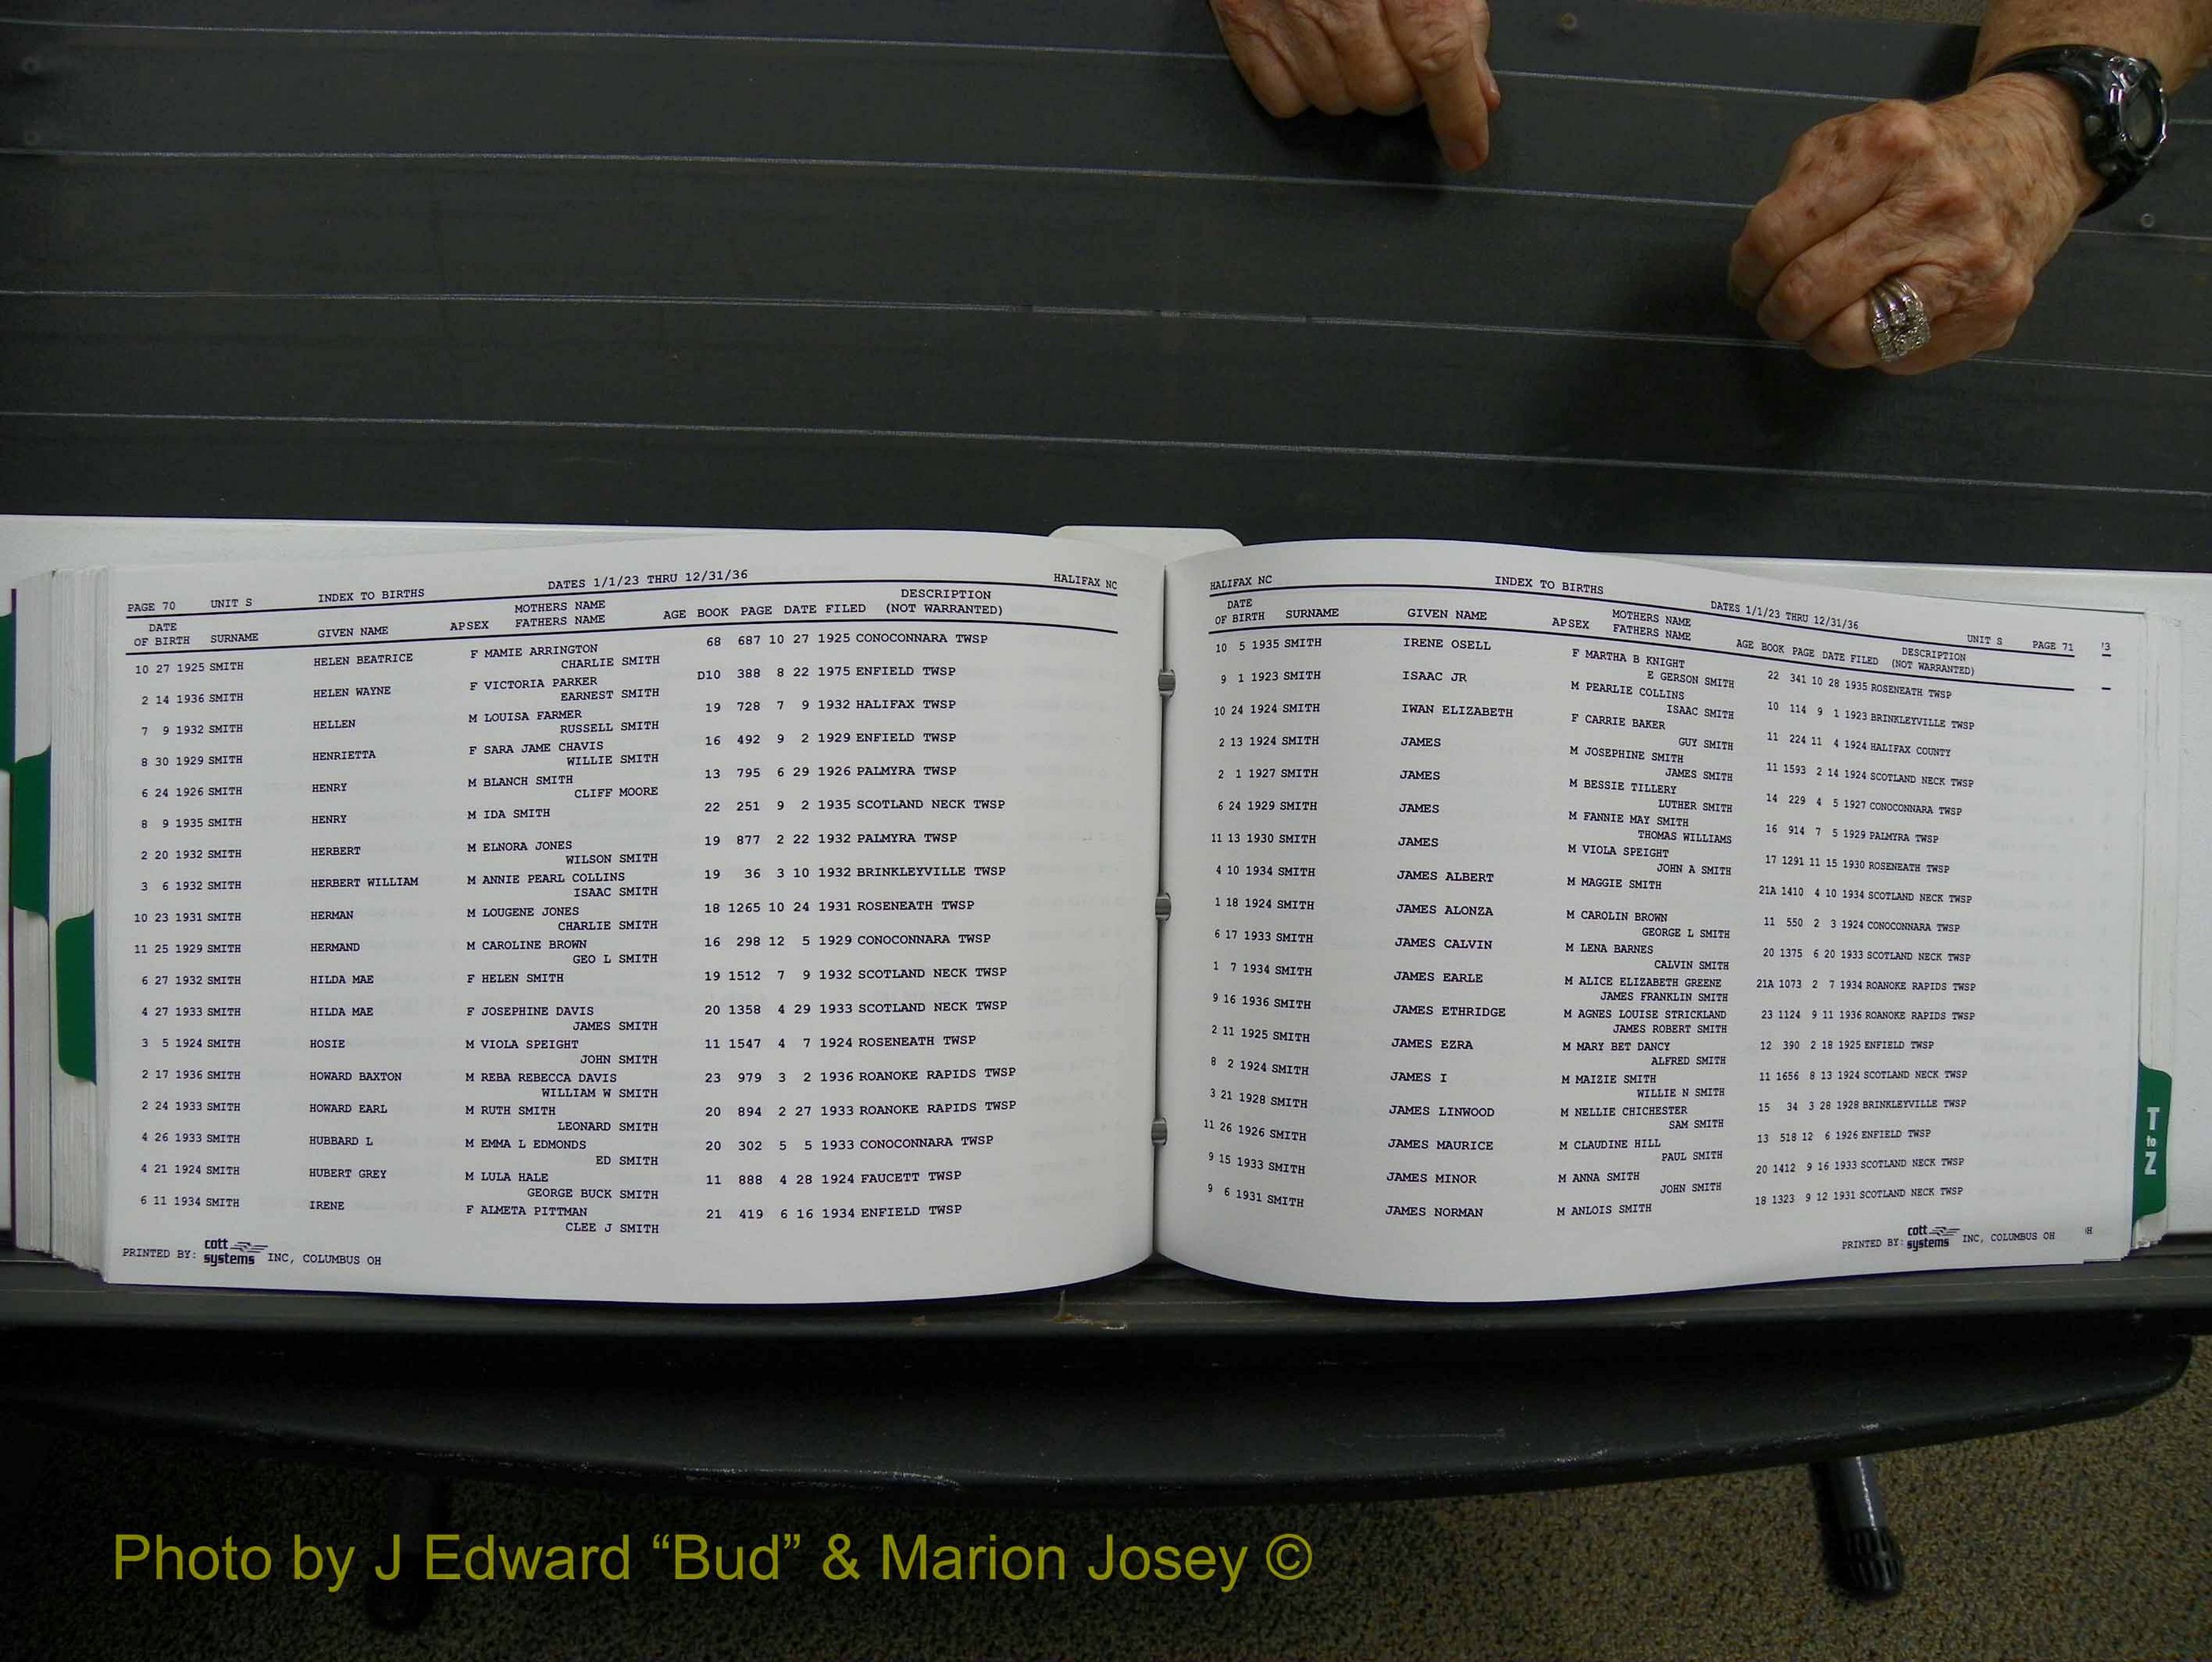 PAGE 70 UNIT S INDEX TO BIRTHS DATES 1/1/23 THRU 12/31/36 HALIFAX NC
DATE OF BIRTH SURNAME GIVEN NAME AP SEX MOTHERS NAME FATHERS NAME AGE BOOK PAGE DATE FILED DESCRIPTION (NOT WARRANTED)
10 27 1925 SMITH HELEN BEATRICE F MAMIE ARRINGTON 68 687 10 27 1925 CONOCONNARA TWSP
CHARLIE SMITH
2 14 1936 SMITH HELEN WAYNE F VICTORIA PARKER D10 388 8 22 1975 ENFIELD TWSP
EARNEST SMITH
7 9 1932 SMITH HELLEN M LOUISA FARMER 19 728 7 9 1932 HALIFAX TWSP
RUSSELL SMITH
8 30 1929 SMITH HENRIETTA F SARA JAME CHAVIS 16 492 9 2 1929 ENFIELD TWSP
WILLIE SMITH
6 24 1926 SMITH HENRY M BLANCH SMITH 13 795 6 29 1926 PALMYRA TWSP
CLIFF MOORE
8 9 1935 SMITH HENRY M IDA SMITH 22 251 9 2 1935 SCOTLAND NECK TWSP
2 20 1932 SMITH HERBERT M ELNORA JONES 19 877 2 22 1932 PALMYRA TWSP
WILSON SMITH
3 6 1932 SMITH HERBERT WILLIAM M ANNIE PEARL COLLINS 19 36 3 10 1932 BRINKLEYVILLE TWSP
ISAAC SMITH
10 23 1931 SMITH HERMAN M LOUGENE JONES 18 1265 10 24 1931 ROSENEATH TWSP
CHARLIE SMITH
11 25 1929 SMITH HERMAND M CAROLINE BROWN 16 298 12 5 1929 CONOCONNARA TWSP
GEO L SMITH
6 27 1932 SMITH HILDA MAE F HELEN SMITH 19 1512 7 9 1932 SCOTLAND NECK TWSP
4 27 1933 SMITH HILDA MAE F JOSEPHINE DAVIS 20 1358 4 29 1933 SCOTLAND NECK TWSP
JAMES SMITH
3 5 1924 SMITH HOSIE M VIOLA SPEIGHT 11 1547 4 7 1924 ROSENEATH TWSP
JOHN SMITH
2 17 1936 SMITH HOWARD BAXTON M REBA REBECCA DAVIS 23 979 3 2 1936 ROANOKE RAPIDS TWSP
WILLIAM W SMITH
2 24 1933 SMITH HOWARD EARL M RUTH SMITH 20 894 2 27 1933 ROANOKE RAPIDS TWSP
LEONARD SMITH
4 26 1933 SMITH HUBBARD L M EMMA L EDMONDS 20 302 5 5 1933 CONOCONNARA TWSP
ED SMITH
4 21 1924 SMITH HUBERT GREY M LULA HALE 11 888 4 28 1924 FAUCETT TWSP
GEORGE BUCK SMITH
6 11 1934 SMITH IRENE F ALMETA PITTMAN 21 419 6 16 1934 ENFIELD TWSP
CLEE J SMITH
PRINTED BY: cott systems INC, COLUMBUS OH
HALIFAX NC INDEX TO BIRTHS DATES 1/1/23 THRU 12/31/36 UNIT S PAGE 71
DATE OF BIRTH SURNAME GIVEN NAME AP SEX MOTHERS NAME FATHERS NAME AGE BOOK PAGE DATE FILED DESCRIPTION (NOT WARRANTED)
10 5 1935 SMITH IRENE OSELL F MARTHA B KNIGHT 22 341 10 28 1935 ROSENEATH TWSP
E GERSON SMITH
9 1 1923 SMITH ISAAC JR M PEARLIE COLLINS 10 114 9 1 1923 BRINKLEYVILLE TWSP
ISAAC SMITH
10 24 1924 SMITH IWAN ELIZABETH F CARRIE BAKER 11 224 11 4 1924 HALIFAX COUNTY
GUY SMITH
2 13 1924 SMITH JAMES M JOSEPHINE SMITH 11 1593 2 14 1924 SCOTLAND NECK TWSP
JAMES SMITH
2 1 1927 SMITH JAMES M BESSIE TILLERY 14 229 4 5 1927 CONOCONNARA TWSP
LUTHER SMITH
6 24 1929 SMITH JAMES M FANNIE MAY SMITH 16 914 7 5 1929 PALMYRA TWSP
THOMAS WILLIAMS
11 13 1930 SMITH JAMES M VIOLA SPEIGHT 17 1291 11 15 1930 ROSENEATH TWSP
JOHN A SMITH
4 10 1934 SMITH JAMES ALBERT M MAGGIE SMITH 21A 1410 4 10 1934 SCOTLAND NECK TWSP
1 18 1924 SMITH JAMES ALONZA M CAROLIN BROWN 11 550 2 3 1924 CONOCONNARA TWSP
GEORGE L SMITH
6 17 1933 SMITH JAMES CALVIN M LENA BARNES 20 1375 6 20 1933 SCOTLAND NECK TWSP
CALVIN SMITH
1 7 1934 SMITH JAMES EARLE M ALICE ELIZABETH GREENE 21A 1073 2 7 1934 ROANOKE RAPIDS TWSP
JAMES FRANKLIN SMITH
9 16 1936 SMITH JAMES ETHRIDGE M AGNES LOUISE STRICKLAND 23 1124 9 11 1936 ROANOKE RAPIDS TWSP
JAMES ROBERT SMITH
2 11 1925 SMITH JAMES EZRA M MARY BET DANCY 12 390 2 18 1925 ENFIELD TWSP
ALFRED SMITH
8 2 1924 SMITH JAMES I M MAIZIE SMITH 11 1656 8 13 1924 SCOTLAND NECK TWSP
WILLIE N SMITH
3 21 1928 SMITH JAMES LINWOOD M NELLIE CHICHESTER 15 34 3 28 1928 BRINKLEYVILLE TWSP
SAM SMITH
11 26 1926 SMITH JAMES MAURICE M CLAUDINE HILL 13 518 12 6 1926 ENFIELD TWSP
PAUL SMITH
9 15 1933 SMITH JAMES MINOR M ANNA SMITH 20 1412 9 16 1933 SCOTLAND NECK TWSP
JOHN SMITH
9 6 1931 SMITH JAMES NORMAN M ANLOIS SMITH 18 1323 9 12 1931 SCOTLAND NECK TWSP
PRINTED BY: cott systems INC, COLUMBUS OH
T to Z
Photo by J Edward “Bud” & Marion Josey ©